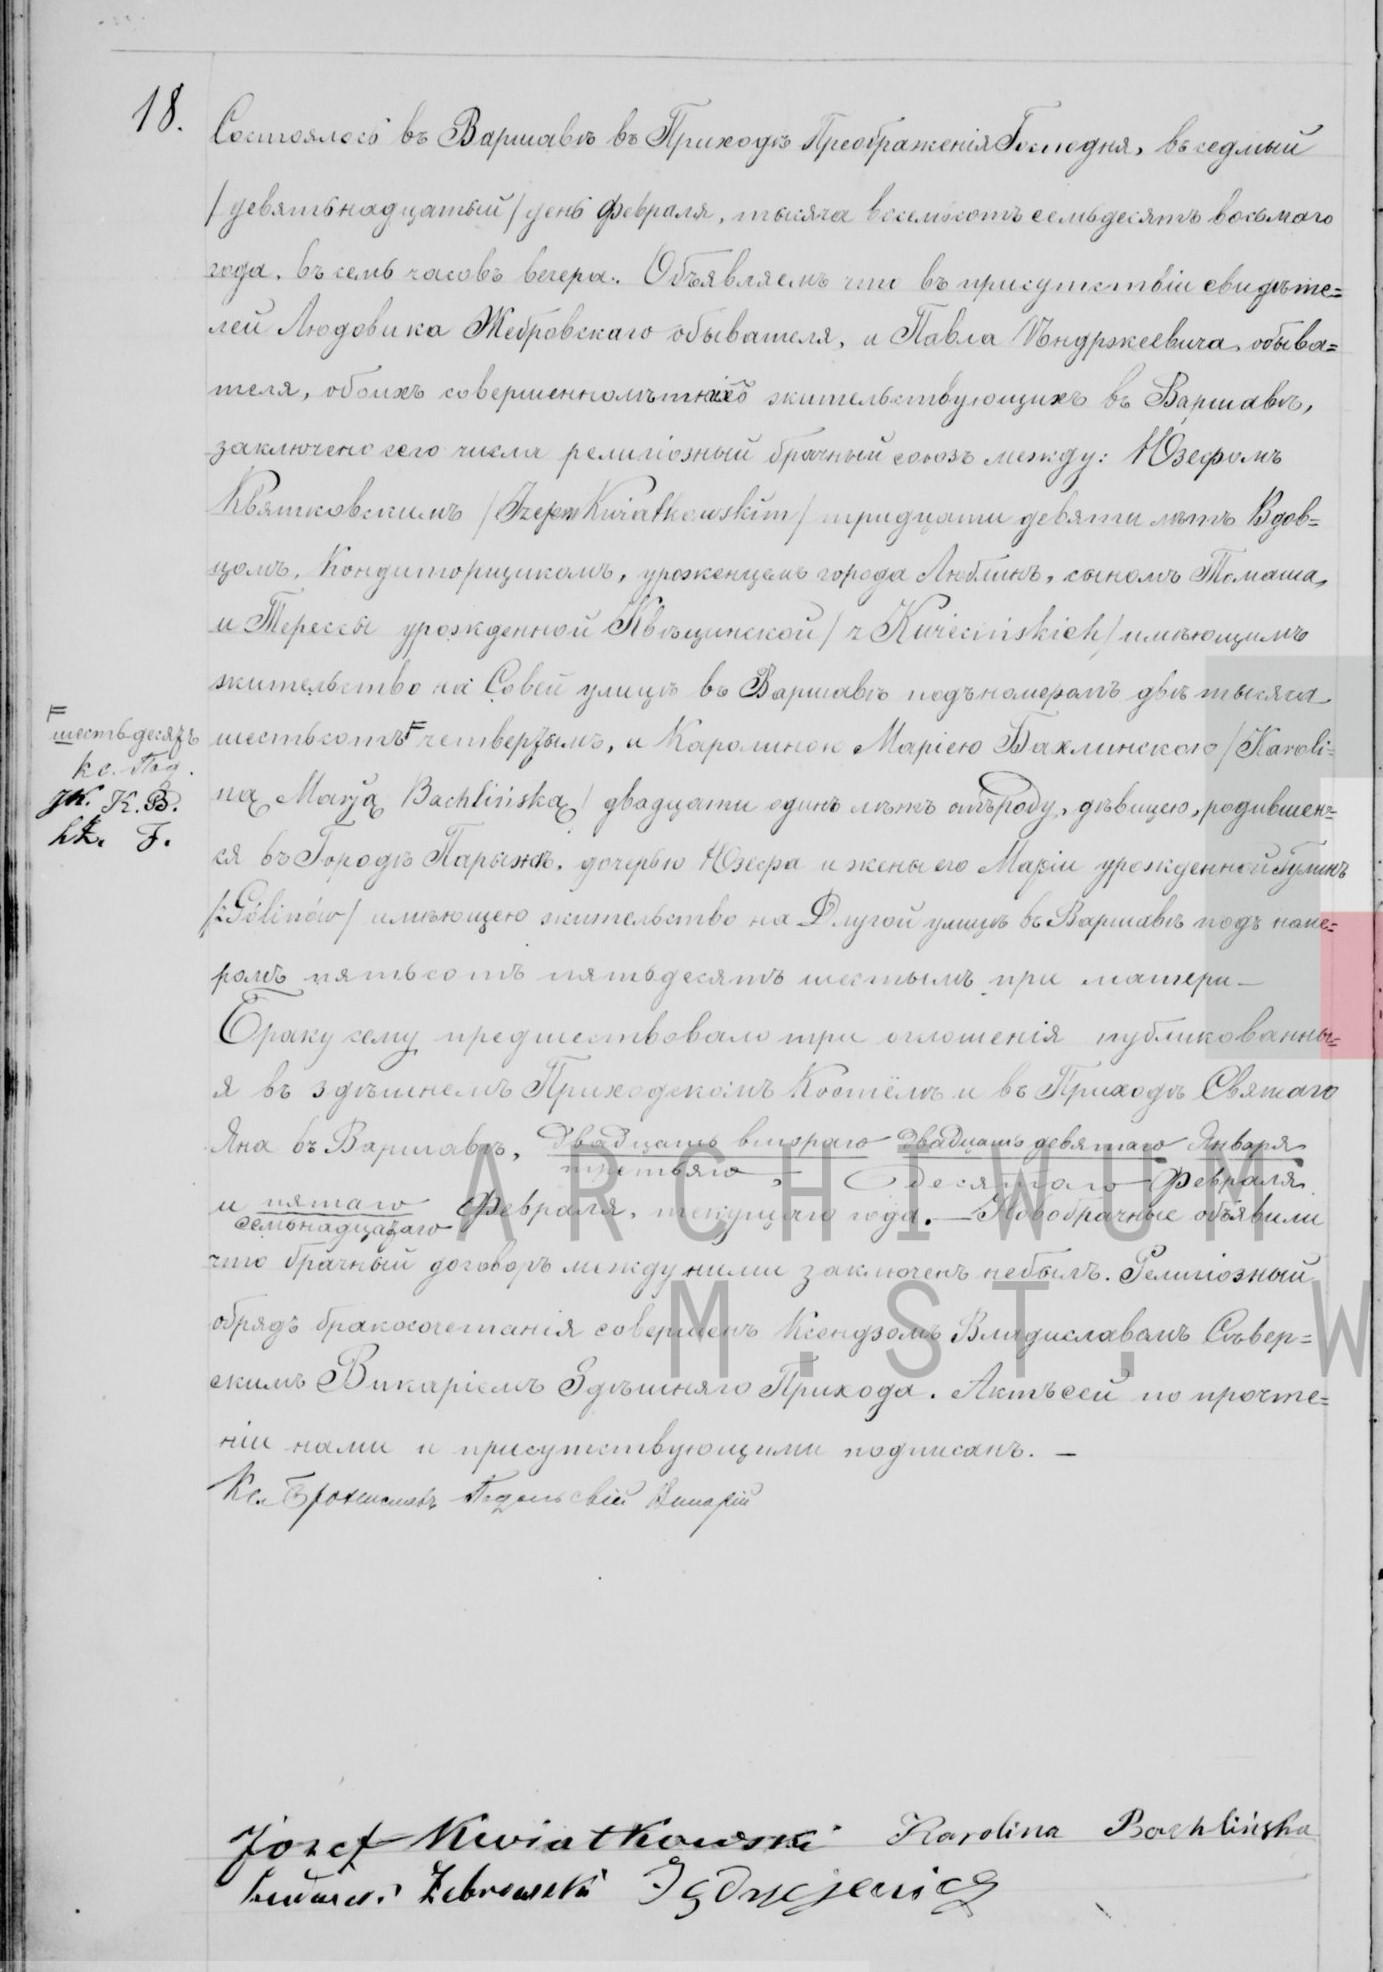 18.
Состоялось въ Варшавѣ въ Приходѣ Преображенія Господня, въ седмый
/девятьнадцатый/ день Февраля, тысяча восемьсотъ семьдесятъ восьмаго
года, въ семь часовъ вечера. Объявляемъ что въ присутствіи свидѣте=
лей Людовика Жебровскаго обывателя, и Павла Ѣндржеевича, обыва=
теля, обоихъ совершеннолѣтнихъ жительствующихъ въ Варшавѣ,
заключено сего числа религіозный брачный союзъ между: Юзефомъ
Квятковскимъ /Józefem Kwiatkowskim/ тридцати девяти лѣтъ Вдов=
цомъ, Кондиторщикомъ, уроженцемъ города Люблинъ, сыномъ Томаша,
и Терессы урожденной Квѣцинской /z Kwiecińskich/ имѣющимъ
жительство на Совей улицѣ въ Варшавѣ подъ номеромъ двѣ тысяча
шестьсотъ F четвертымъ, и Каролиною Маріею Бахлинскою /Karoli=
F
шестьдесятъ
кс. Под.
JK. K. B.
LŻ. J.
ną Marją Bachlińską/ двадцати одинъ лѣтъ отъ роду, дѣвицею, родившею=
ся въ Городѣ Парыжѣ, дочерью Юзефа и жены его Маріи урожденной Гулинъ
/z Gólinów/ имѣющею жительство на Длугой улицѣ въ Варшавѣ подъ номе=
ромъ пятьсотъ пятьдесятъ шестымъ при матери —
Браку сему предшествовало три оглошенія публикованны=
я въ здѣшнемъ Приходскомъ Костёлѣ и въ Приходѣ Святаго
Яна въ Варшавѣ, двадцать втораго двадцать девятаго Января
третьяго, десятаго Февраля
и пятаго Февраля, текущаго года. — Новобрачные объявили
семьнадцатаго
что брачный договоръ между ними заключенъ небылъ. Религіозный
обрядъ бракосочетанія совершенъ Ксендзомъ Владиславомъ Сѣвер=
скимъ Викаріемъ Здѣшняго Прихода. Актъ сей по прочте=
ніи нами и присутствующими подписанъ. —
Кс. Брониславъ Подольскій Викарій
Józef Kwiatkowski Karolina Bachlińska
Ludwik Żebrowski Jędrzejewicz
ARCHIWUM
M.ST.W